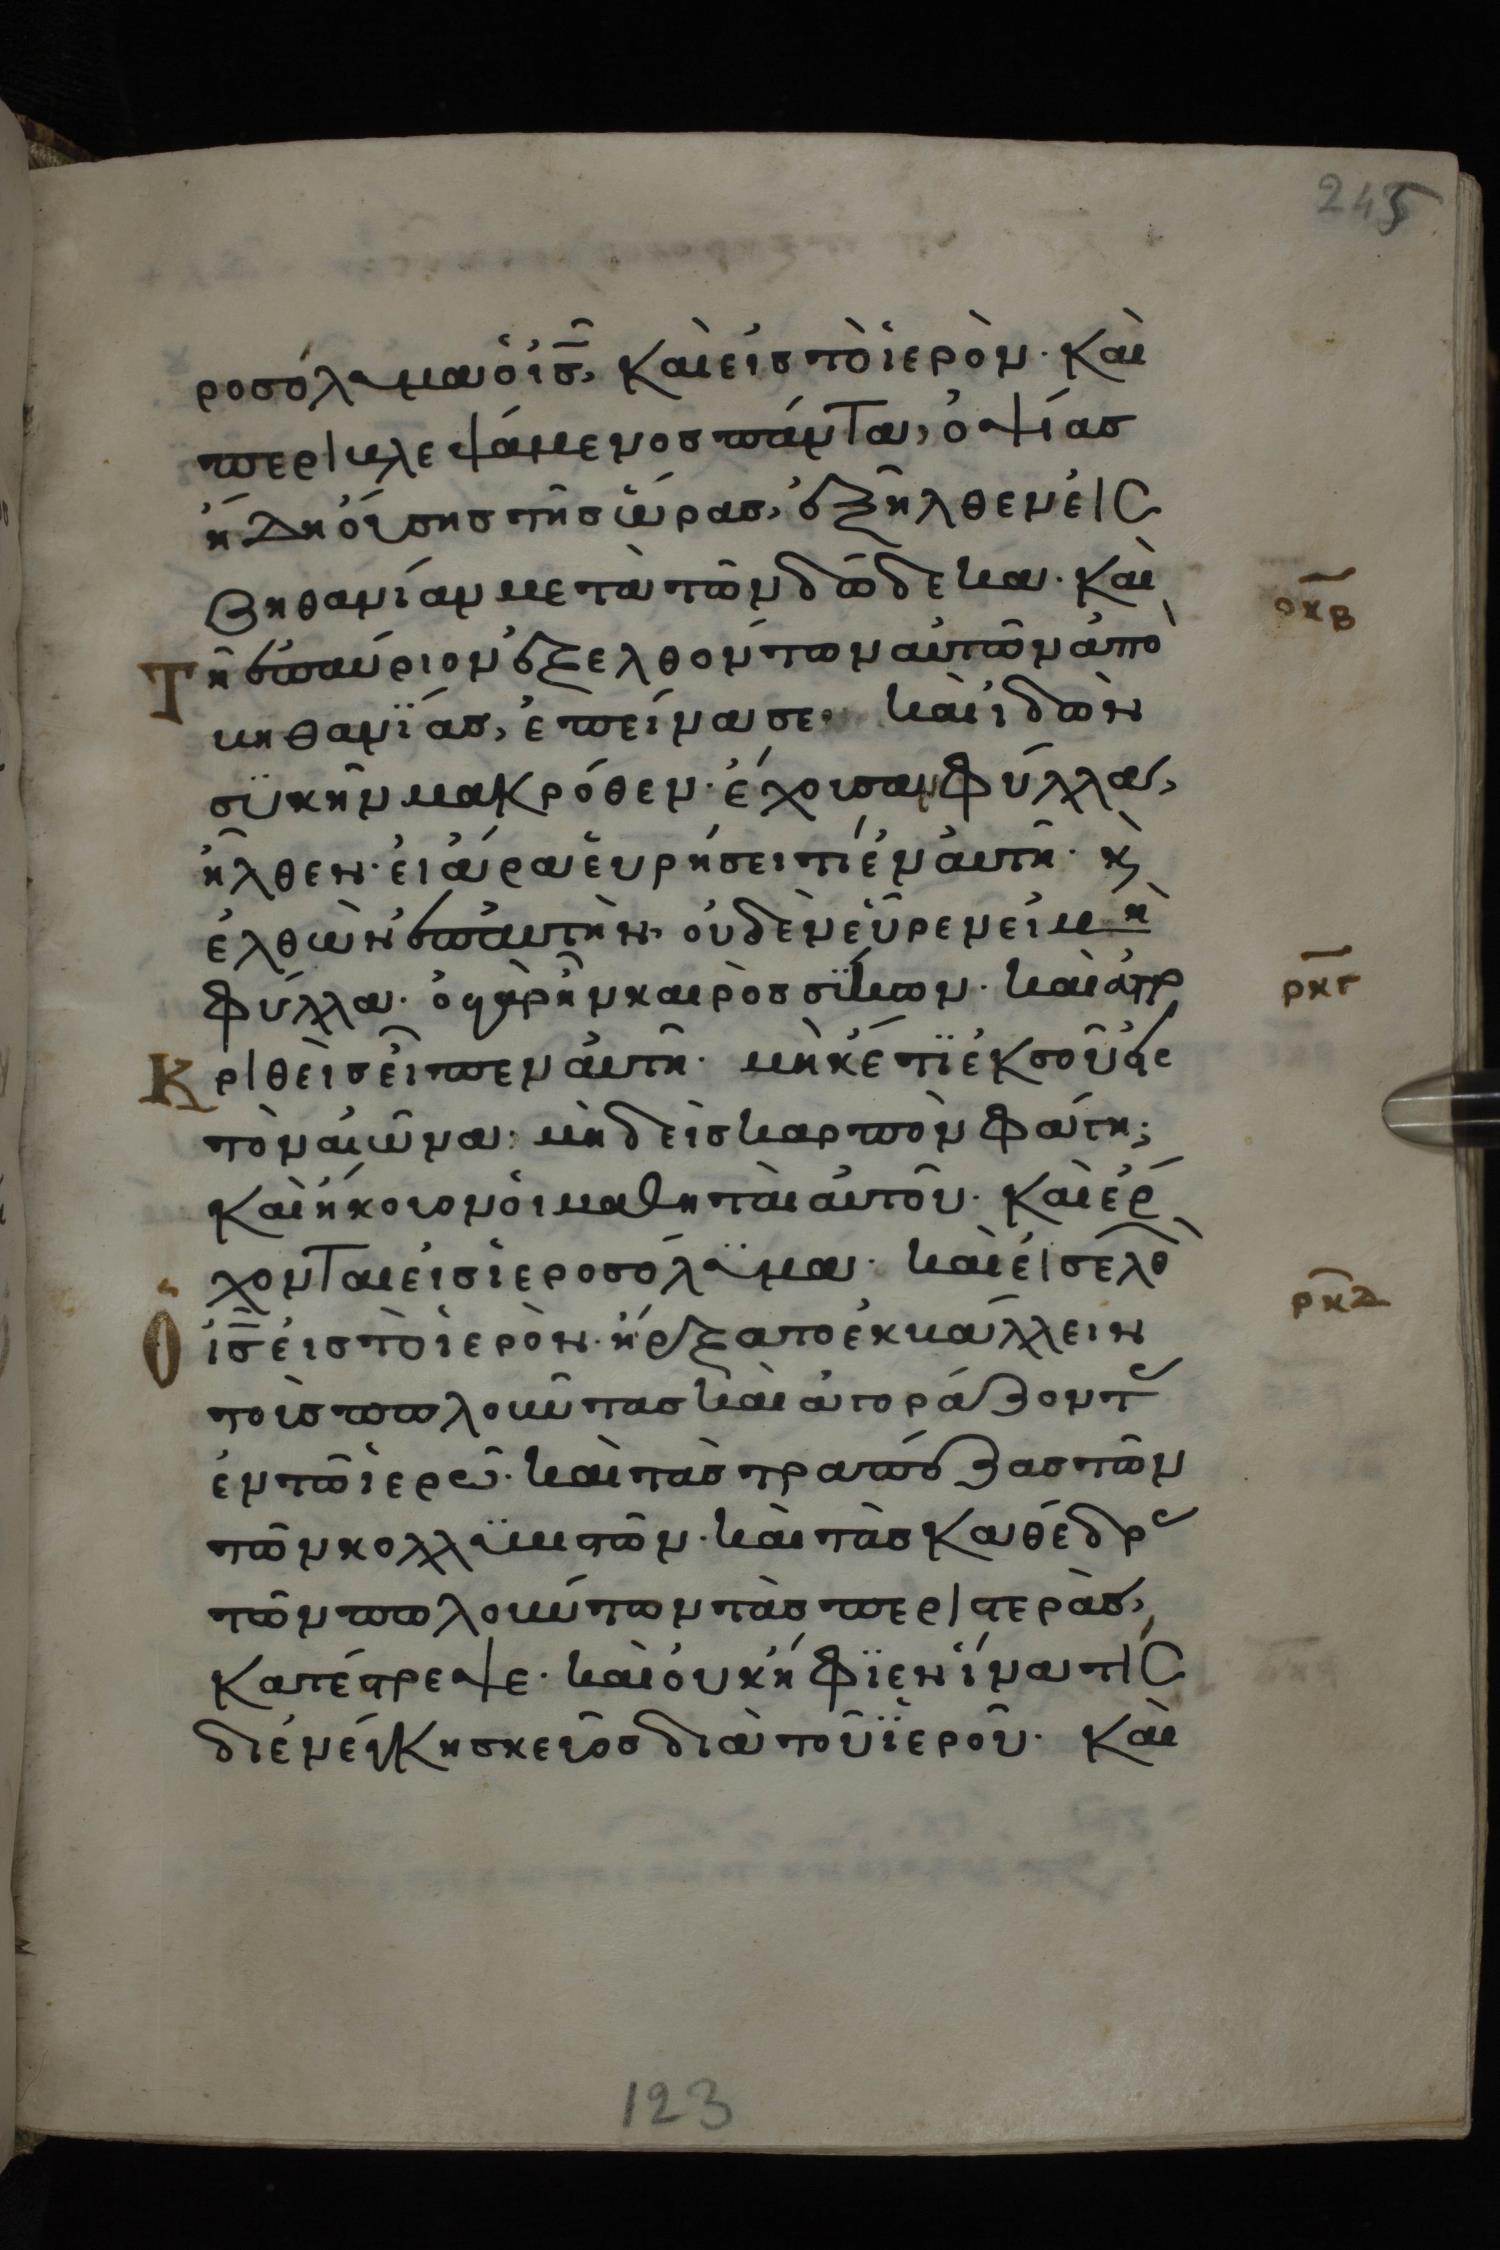 245
ροσόλυμα ὁ ἰς̅, καὶ εἰς τὸ ἱερὸν· καὶ
περιβλεψάμενος πάντα, ὀψίας
ἤδη οὔσης τῆς ὥρας, ἐξῆλθεν εἰς
βηθανίαν μετὰ τῶν δώδεκα· Καὶ
ρκβ
Τῆ ἐπαύριον ἐξελθόντων αὐτῶν ἀπὸ
βηθανϊας, ἐπείνασε· καὶ ἰδὼν
σϋκῆν μακρόθεν· ἔχουσαν φύλλα,
ἦλθεν· εἰ ἄρα εὑρήσει τὶ ἐν αὐτῆ· κ̀
ἐλθὼν ἐπ αὐτὴν, οὐδὲν εὗρεν εἰ μὴ
φύλλα· ὀ γὰρ ἦν καιρὸς σϋκων· καὶ ἀπο
ρκγ
Κριθεὶς εἶπεν αὐτῆ· μὴκέτϊ ἐκ σοῦ εἰς
τὸν αἰῶνα· μὴδεὶς καρπὸν φάγη;
καὶ ἤκουον οἱ μαθηταὶ αὐτοῦ· καὶ ἔρ
χονται εἰς ἱεροσόλϋμα· καὶ εἰσελθὼ
ρκδ
Ὁ ἰς̅ εἰς τὸ ἱερὸν· ἤρξατο ἐκβάλλειν
τοὺς πωλοῦντας καὶ ἀγοράζοντας
ἐν τῶ ἱερῶ· καὶ τὰς τραπέζας τῶν
τῶν κολλϋβιστῶν· καὶ τὰς καθέδρας
τῶν πωλούντων τὰς περιστερὰς,
κατέστρεψε· καὶ οὐκ ἤφϊεν ἵνα τὶς
διενέγκη σκεῦος διὰ τοῦ ϊεροῦ· καὶ
123